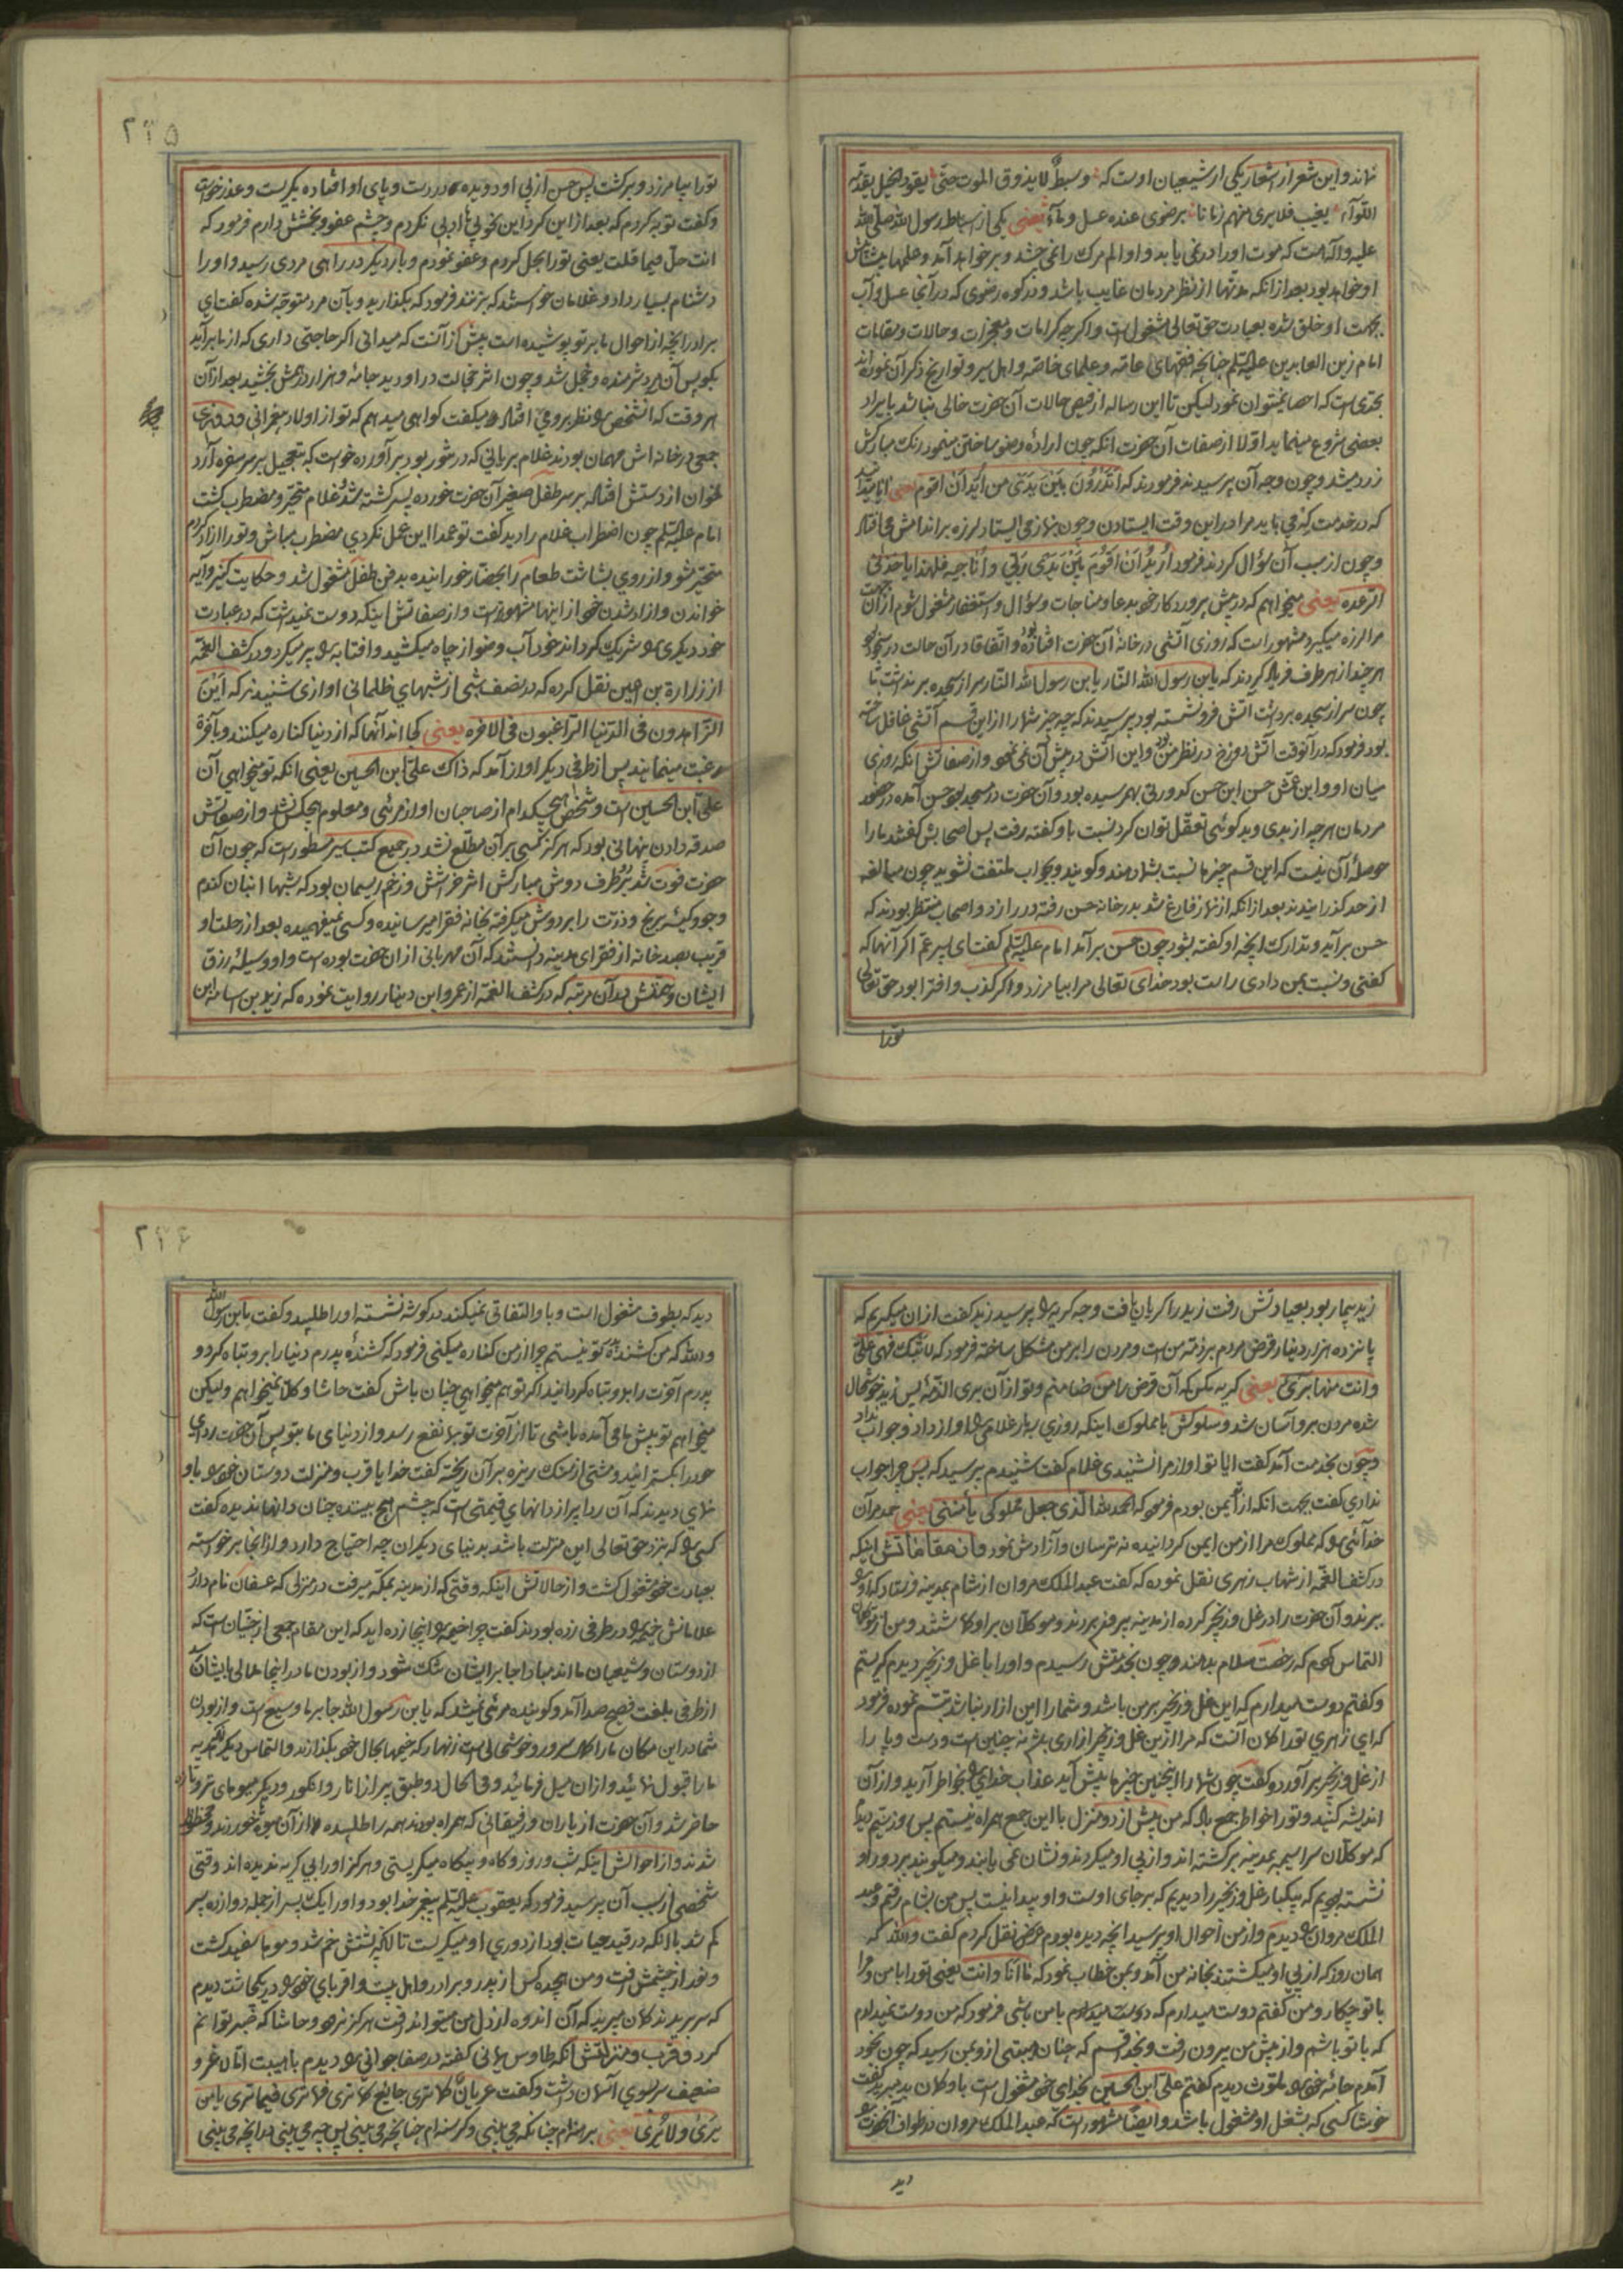 نهاند و این شعر از اشعار یکی از شیعیان اوست که وسبط لا یذوق الموت حتی یقود الخیل یقدمه
اللوآء یغیب فلا یری منهم زمانا برضوی عنده عسل و مآء یعنی یکی از اسباط رسول الله صلی الله
علیه و آله است که موت او را در نمی یابد و او الم مرک را نمی چشد و بر خواهد آمد و علمها پیشاپیش
او خواهد بود بعد از آنکه مدتها از نظر مردمان غایب باشد و در کوه رضوی که در آنجا عسل و آب
بجهت او خلق شده بعبادت حق تعالی مشغول است و اکرچه کرامات و معجزات و حالات و مقامات
امام زین العابدین علیه السلم چنانچه فقهای عامه و علمای خاصه و اهل سیر و تواریخ ذکر آن نموده اند
بحدی است که احصا نمیتوان نمود لیکن تا این رساله از فیض حالات آن حضرت خالی نباشد بایراد
بعضی شروع مینماید اولا از صفات آن حضرت آنکه چون اراده وضو ساختن مینمود رنک مبارکش
زرد میشد و چون وجه آن پرسیدند فرمودند که اتدرون بین یدی من ارید ان اقوم یعنی ایا میدانید
که در خدمت که می باید مرا در این وقت ایستادن و چون بنماز می ایستاد لرزه بر اندامش می افتاد
و چون از سبب آن سؤال کردند فرمود ارید ان اقوم بین یدی ربی و اناجیه فلهذا یاخذنی
الرعده یعنی میخواهم که در پیش پروردکار خود بدعا و مناجات و سؤال و استغفار مشغول شوم از آن جهت
مرا لرزه میکیرد مشهور است که روزی آتشی در خانه آن حضرت افتاده بود و اتفاقا در آن حالت در سجود بود
هر چند از هر طرف فریاد کردند که یابن رسول الله النار یابن رسول الله النار سر از سجده بر نداشت تا
چون سر از سجده برداشت آتش فرو نشسته بود پرسیدند که چه چیز شما را از این قسم آتشی غافل ساخته
بود فرمود که در آنوقت آتش دوزخ در نظر من بود و این آتش در پیش آن نمی نمود و از صفاتش آنکه روزی
میان او و ابن عمش حسن ابن حسن کدورتی بهم رسیده بود و آن حضرت در مسجد بود حسن آمده در حضور
مردمان هر چه از بدی و بدکوئی تعقل توان کرد نسبت باو کفته رفت پس اصحابش کفتند ما را
حوصله آن نیست که این قسم چیزها نسبت بشما دهند و کویند و بجواب ملتفت نشوید چون مبالغه
از حد کذرانیدند بعد از آنکه از نماز فارغ شد بدر خانه حسن رفته در را زد و اصحاب منتظر بودند که
حسن بر آید و تدارک آنچه او کفته بشود چون حسن بر آمد امام علیه السلم کفت ای پسر عم اکر آنها که
کفتی و نسبت بمن دادی راست بود خدای تعالی مرا بیامرزد و اکر کذب و افترا بود حق تعالی
تورا
۲۳۵
تورا بیامرزد و برکشت پس حسن از پی او دویده در دست و پای او افتاده بکریست و عذر خواست
و کفت توبه کردم که بعد از این کرد این نحو بی ادبی نکردم و چشم عفو و بخشش دارم فرمود که
انت حل فیما قلت یعنی تو را بحل کردم و عفو نمودم و بار دیکر در راهی مردی رسید و او را
دشنام بسیار داد و غلامان خواستند که بزنند فرمود که بکذارید و بآن مرد متوجه شده کفت ای
برادر آنچه از احوال ما بر تو پوشیده است بیش از آنست که میدانی اکر حاجتی داری که از ما بر آید
بکو پس آن مرد شرمنده و خجل شد و چون اثر خجالت در او دید جامه و هزار درهمش بخشید بعد از آن
هر وقت که آنشخص را نظر بر وی افتاد میکفت کواهی میدهم که تو از اولاد پیغمبرانی و روزی
جمعی در خانه اش مهمان بودند غلام بریانی که در تنور بود بر آورده خواست که بتعجیل بر سر سفره آرد
خوان از دستش افتاد بر سر طفل صغیر آن حضرت خورده پسر کشته شد غلام متحیر و مضطرب کشت
امام علیه السلم چون اضطراب غلام را دید کفت تو عمدا این عمل نکردی مضطرب مباش و تو را ازاد کردم
متحیر مشو و از روی بشاشت طعام را بحضار خورانیده بدفن طفل مشغول شد و حکایت کنیز و آیه
خواندن و ازاد شدن خود از اینها مشهورتر است و از صفاتش اینکه دوست نمیداشت که در عبادت
خود دیکری را شریک کرداند خود آب وضو از چاه میکشید و افتابه را پر میکرد و در کشف الغمه
از زرارة بن اعین نقل کرده که در نصف شبی از شبهای ظلمانی اوازی شنیدند که این
الزاهدون فی الدنیا الراغبون فی الاخره یعنی کجا اند آنها که از دنیا کناره میکنند و باخره
رغبت مینمایند پس از طرفی دیکر اواز آمد که ذاک علی ابن الحسین یعنی آنکه تو میخواهی آن
علی ابن الحسین است و شخص هیچکدام از صاحبان اواز مرئی و معلوم هیچکس نشد و از صفاتش
صدقه دادن پنهانی بود که هرکز کسی بر آن مطلع نشد در جمیع کتب سیر مسطور است که چون آن
حضرت فوت شد بر طرف دوش مبارکش اثر خراش و زخم ریسمان بود که شبها انبان کندم
و جو و کیسه برنج و ذرت را بر دوش میکرفته بخانه فقرا میرسانیده و کسی نمیفهمیده بعد از رحلت او
قریب بصد خانه از فقرای مدینه دانستند که آن مهربانی از ان حضرت بوده است و او وسیله رزق
ایشان و همتش بدان مرتبه که در کشف الغمه از عمرو ابن دینار روایت نموده که زید بن اسامه ابن
زید بیمار بود بعیادتش رفت زید را کریان یافت وجه کریه را پرسید زید کفت از ان میکریم که
پانزده هزار دینار قرض مردم بر ذمه من است و مردن را بر من مشکل ساخته فرمود که لا تبک فهی علی
و انت منها بری یعنی کریه مکن که آن قرض را من ضامنم و تو از آن بری الذمه پس زید خوشحال
شده مردن برو آسان شد و سلوکش با مملوک اینکه روزی دوبار غلامی را اواز داد و جواب نداد
و چون بخدمت آمد کفت ایا تو اواز مرا نشنیدی غلام کفت شنیدم پرسید که پس چرا جواب
ندادی کفت بجهت آنکه از تو ایمن بودم فرمود که الحمد لله الذی جعل مملوکی یأمننی یعنی حمد مر آن
خدائی را که مملوک مرا از من ایمن کردانیده نه ترسان و آزادش نمود و از مقاماتش اینکه
در کشف الغمه از شهاب زهری نقل نموده که کفت عبد الملک مروان از شام بمدینه فرستاد که او را
ببرند و آن حضرت را در غل و زنجیر کرده از مدینه بیرون بردند و موکلان بر او کماشتند و من از موکلان
التماس کردم که رخصت سلام بدهند و چون بخدمتش رسیدم و او را با غل و زنجیر دیدم کریستم
و کفتم دوست میدارم که این غل و زنجیر بر من باشد و شما را این ازار نباشد تبسم نموده فرمود
که ای زهری تو را کمان آنست که مرا از این غل و زنجیر ازاری باشد نه چنین است و دست و پا را
از غل و زنجیر بر آورد و کفت چون شما را اینچنین چیزها پیش آید عذاب خدای را بخاطر آرید و از آن
اندیشه کنید و تو را خواطر جمع باد که من بیش از دو منزل با این جمع همراه نیستم پس روز سیم دیدم
که موکلان سراسیمه بمدینه برکشته اند و از پی او میکردند و نشان نمی یابند و میکویند بر دور او
نشسته بودیم که بیکبار غل و زنجیر را دیدیم که بر جای اوست و او پیدا نیست پس من بشام رفتم و عبد
الملک مروان را دیدم و از من احوال او پرسید آنچه دیده بودم عرض نقل کردم کفت والله که
همان روز که از پی او میکشتند بخانه من آمد و بمن خطاب نمود که ما انا و انت یعنی تو را با من و مرا
با تو چکار و من کفتم دوست میدارم که دوست میدارم با من باشی فرمود که من دوست نمیدارم
که با تو باشم و از پیش من بیرون رفت و بخدا قسم که چنان هیبتی از و بمن رسید که چون بخود
آمدم جامه خود را ملوث دیدم کفتم علی ابن الحسین بخدای خود مشغول است باو کمان بد مبرید کفت
خوشا کسی که بشغل او مشغول باشد و ایضا مشهور است که عبد الملک مروان در طواف آنحضرت را
دید
۲۳۶
دید که بطوف مشغول است و باو التفاتی نمیکند در کوشه نشسته او را طلبید و کفت یابن رسول الله
والله که من کشنده پدر تو نیستم چرا از من کناره میکنی فرمود که کشنده پدرم دنیا را برو تباه کرد و
پدرم آخرت را برو تباه کردانید اکر تو هم میخواهی چنان باش کفت حاشا و کلا نمیخواهم ولیکن
میخواهم تو پیش ما می آمده باشی تا از آخرت تو بما نفع رسد و از دنیای ما بتو پس آن حضرت ردای
خود را بکسترانید و مشتی از سنک ریزه بر آن ریخته کفت خدایا قرب و منزلت دوستان خود را باو
نمای دیدند که آن ردا پر از دانهای قیمتی است که چشم هیچ بیننده چنان دانها ندیده کفت
کسی را که نزد حق تعالی این منزلت باشد بدنیای دیکران چه احتیاج دارد و از انجا برخواسته
بعبادت خود مشغول کشت و از حالاتش اینکه وقتی که از مدینه بمکه میرفت در منزلی که عسفان نام دارد
غلامانش خیمه را در طرفی زده بودند کفت چرا خیمه را اینجا زده اید که این مقام جمعی از جنیان است که
از دوستان و شیعیان ما اند مبادا جا بر ایشان تنک شود و از بودن ما در اینجا ملالی بایشان
از طرفی بلغت فصیح صدا آمد و کوینده مرئی نمیشد که یابن رسول الله جا بر ما وسیع است و از بودن
شما در این مکان ما را کمال سرور و خوشحالی است زنهار که خیمها بحال خود بکذارند و التماس دیکر آنکه هدیه
ما را قبول نمائید و از ان میل فرمائید و فی الحال دو طبق پر از انار و انکور و دیکر میوهای تر و تازه
حاضر شد و آن حضرت از یاران و رفیقانی که همراه بودند همه را طلبیده از آن میوه خوردند و محظوظ
شدند و از احوالش اینکه شب و روز و کاه و بیکاه میکریستی و هرکز او را بی کریه ندیده اند وقتی
شخصی از سبب آن پرسید فرمود که یعقوب علیه السلم پیغمبر خدا بود و او را یک پسر از جمله دوازده پسر
کم شد با آنکه در قید حیات بود از دوری او میکریست تا آنکه پشتش خم شد و موی ها سفید کشت
و نور از چشمش رفت و من هیجده کس از پدر و برادر و اهل بیت و اقربای خود را در یکجاشت دیدم
که سر بریدند کمان میبرید که آن اندوه از دل من میتواند رفت هرکز نرود و حاشا که صبر توانم
کرد و قرب و منزلتش آنکه طاوس یمانی کفته در صفا جوانی را دیدم با هیبت اما لاغر و
ضعیف سر بسوی آسمان داشت و کفت عریان کما تری جایع کما تری فما تری فیما تری یا من
یری و لا یری یعنی برهنه ام چنانکه می بینی و کرسنه ام چنانچه می بینی پس چه می بینی در آنچه می بینی